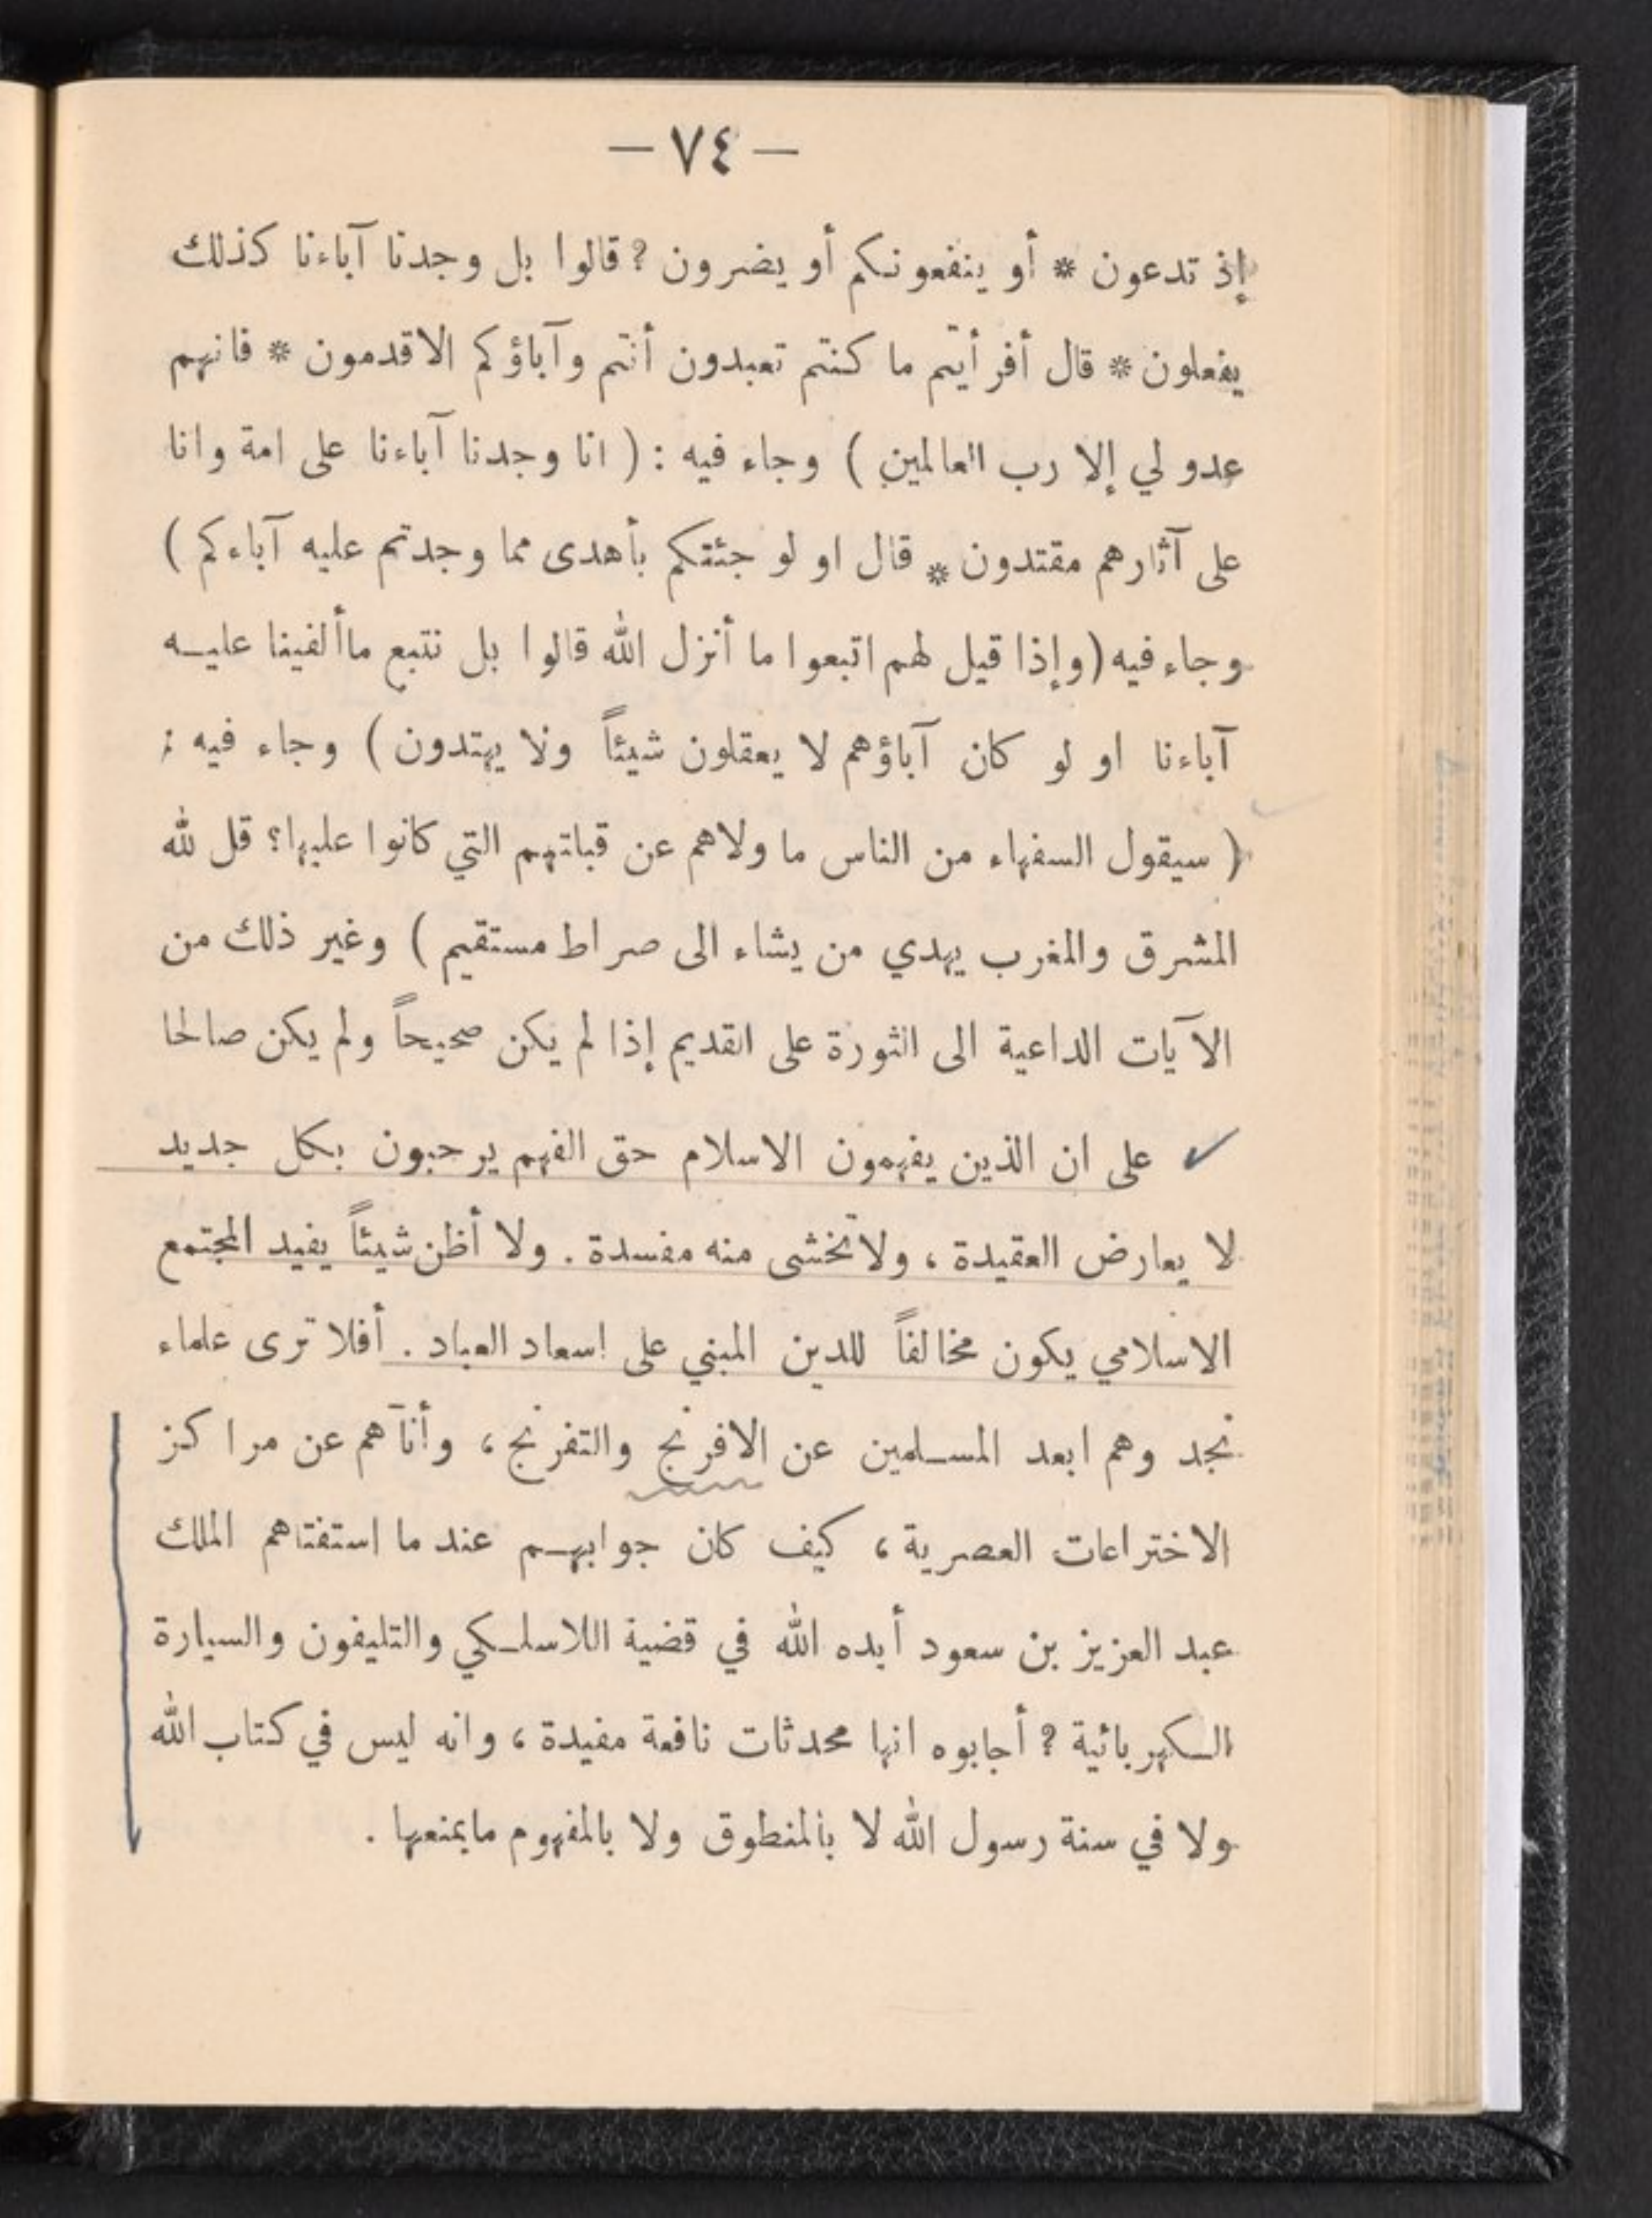 — ٧٤ —
إذ تدعون * أو ينفعونكم أو يضرون ? قالوا بل وجدنا آباءنا كذلك
يفعلون * قال أفرأيتم ما كنتم تعبدون أنتم وآباؤكم الاقدمون * فانهم
عدو لي إلا رب العالمين ) وجاء فيه : ( انا وجدنا آباءنا على امة وانا
على آثارهم مقتدون * قال او لو جئتكم بأهدى مما وجدتم عليه آباءكم )
وجاء فيه ( وإذا قيل لهم اتبعوا ما أنزل الله قالوا بل نتبع ماألفينا عليـه
آباءنا او لو كان آباؤهم لا يعقلون شيئاً ولا يهتدون ) وجاء فيه :
( سيقول السفهاء من الناس ما ولاهم عن قبلتهم التي كانوا عليها؟ قل لله
المشرق والمغرب يهدي من يشاء الى صراط مستقيم ) وغير ذلك من
الآيات الداعية الى الثورة على القديم إذا لم يكن صحيحاً ولم يكن صالحا
على ان الذين يفهمون الاسلام حق الفهم يرحبون بكل جديد
لا يعارض العقيدة ، ولا تخشى منه مفسدة . ولا أظن شيئاً يفيد المجتمع
الاسلامي يكون مخالفاً للدين المبني على اسعاد العباد . أفلا ترى علماء
نجد وهم ابعد المسـلمين عن الافرنج والتفرنج ، وأنآهم عن مراكز
الاختراعات العصرية ، كيف كان جوابهـم عند ما استفتاهم الملك
عبد العزيز بن سعود أيده الله في قضية اللاسلـكي والتليفون والسيارة
الـكهربائية ? أجابوه انها محدثات نافعة مفيدة ، وانه ليس في كتاب الله
ولا في سنة رسول الله لا بالمنطوق ولا بالمفهوم مايمنعها .